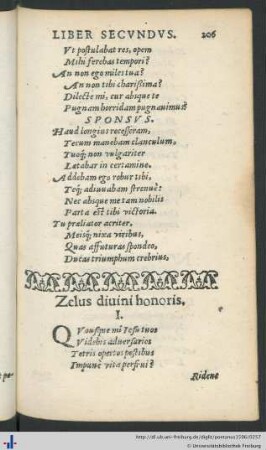 LIBER SECVNDVS. 206
Vt postulabat res, opem
Mihi ferebas tempori?
An non ego miles tua?
An non tibi charissima?
Dilecte mi, cur absque te
Pugnam horridam pugnauimus?
SPONSVS.
Haud longius recesseram,
Tecum manebam clanculum,
Tuoq; non vulgariter
Lætabar in certamine.
Addebam ego robur tibi,
Teq; adiuuabam strenuè:
Nec absque me tam nobilis
Parta est tibi victoria.
Tu præliater acriter,
Meisq; nixa viribus,
Quas affuturas spondeo,
Ducas triumphum crebrius.
Zelus diuini honoris.
I.
QVousque mi Iesu tuos
Videbis aduersarios
Tetris opertos pestibus
Impunè vita perfrui?
Ridens
http://dl.ub.uni-freiburg.de/diglit/
© Universitätsbibliothek Freiburg